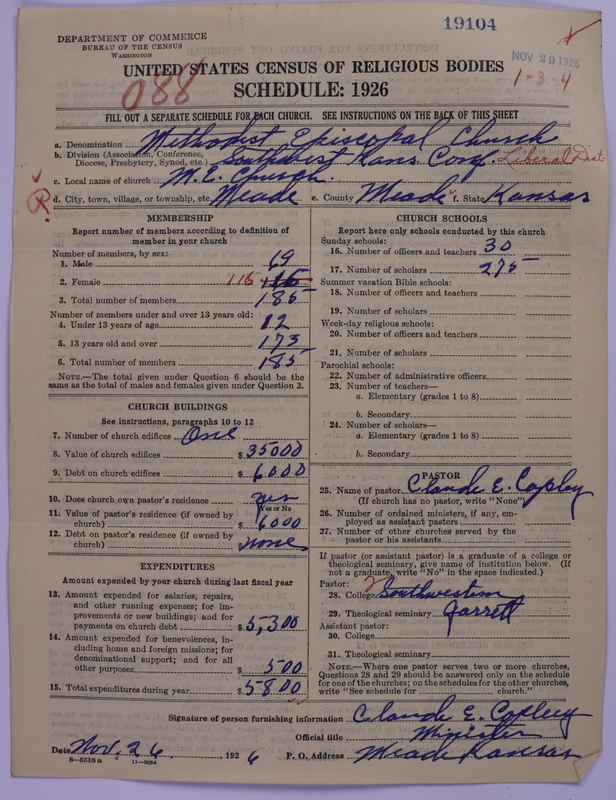 19104
DEPARTMENT OF COMMERCE
BUREAU OF THE CENSUS
WASHINGTON
NOV 29 1926
1-3-4
UNITED STATES CENSUS OF RELIGIOUS BODIES
088
SCHEDULE: 1926
FILL OUT A SEPARATE SCHEDULE FOR EACH CHURCH. SEE INSTRUCTIONS ON THE BACK OF THIS SHEET
a. Denomination Methodist Episcopal Church
b. Division (Association, Conference, Diocese, Presbytery, Synod, etc.) Southwest Kans Conf. Liberal Dist
c. Local name of church M.E. Church.
d. City, town, village, or township, etc. Meade e. County Meade f. State Kansas
R
MEMBERSHIP
Report number of members according to definition of
member in your church
Number of members, by sex:
1. Male 69
2. Female 116 116
3. Total number of members 185
Number of members under and over 13 years old:
4. Under 13 years of age 12
5. 13 years old and over 173
6. Total number of members 185
NOTE.—The total given under Question 6 should be
same as the total of males and females given under Question 3.
CHURCH BUILDINGS
See instructions, paragraphs 10 to 12
7. Number of church edifices One
8. Value of church edifices $35000
9. Debt on church edifices $6000
10. Does church own pastor's residence yes
Yes or No
11. Value of pastor's residence (if owned by
church) $6000
12. Debt on pastor's residence (if owned by
church) none
EXPENDITURES
Amount expended by your church during last fiscal year
13. Amount expended for salaries, repairs,
and other running expenses; for im-
provements or new buildings; and for
payments on church debt $5,300
14. Amount expended for benevolences, in-
cluding home and foreign missions; for
denominational support; and for all
other purposes $500
15. Total expenditures during year $5800
CHURCH SCHOOLS
Report here only schools conducted by this church
Sunday schools:
16. Number of officers and teachers 30
17. Number of scholars 275
Summer vacation Bible schools:
18. Number of officers and teachers
19. Number of scholars
Week-day religious schools:
20. Number of officers and teachers
21. Number of scholars
Parochial schools:
22. Number of administrative officers
23. Number of teachers—
a. Elementary (grades 1 to 8)
b. Secondary
24. Number of scholars—
a. Elementary (grades 1 to 8)
b. Secondary
PASTOR
25. Name of pastor Claude E. Copley
(If church has no pastor, write "None")
26. Number of ordained ministers, if any, em-
ployed as assistant pastors
27. Number of other churches served by the
pastor or his assistants
If pastor (or assistant pastor) is a graduate of a college or
theological seminary, give name of institution below. (If
not a graduate, write "No" in the space indicated.)
Pastor:
28. College Southwestern
29. Theological seminary Garrett
Assistant pastor:
30. College
31. Theological seminary
NOTE.—Where one pastor serves two or more churches,
Questions 28 and 29 should be answered only on the schedule
for one of the churches; on the schedules for the other churches,
write "See schedule for church."
Signature of person furnishing information Claude E. Copley
Official title Minister
Date Nov. 26, 1926 P. O. Address Meade Kansas
8—5518 a 11—9054